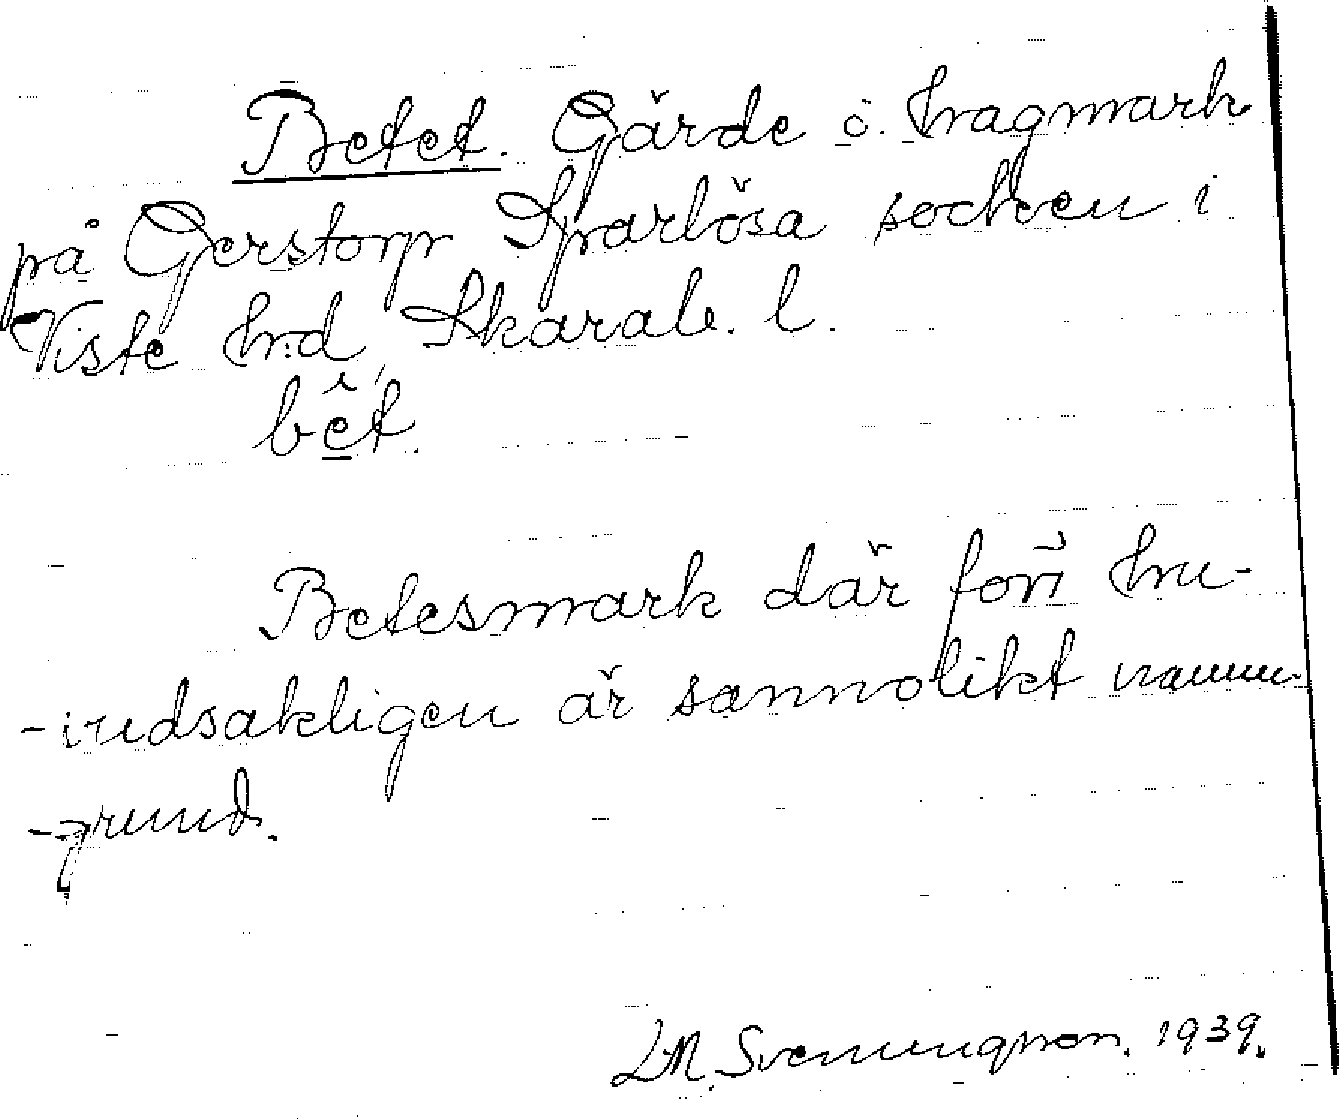 Betet. Gärde o. hagmark
på Gerstorp Sparlösa socken i
Viste hrd, Skarab. l.
bet.
Betesmark där förr hu-
-vudsakligen är sannolikt namn-
-grund.
L.M. Svenungsson. 1939.